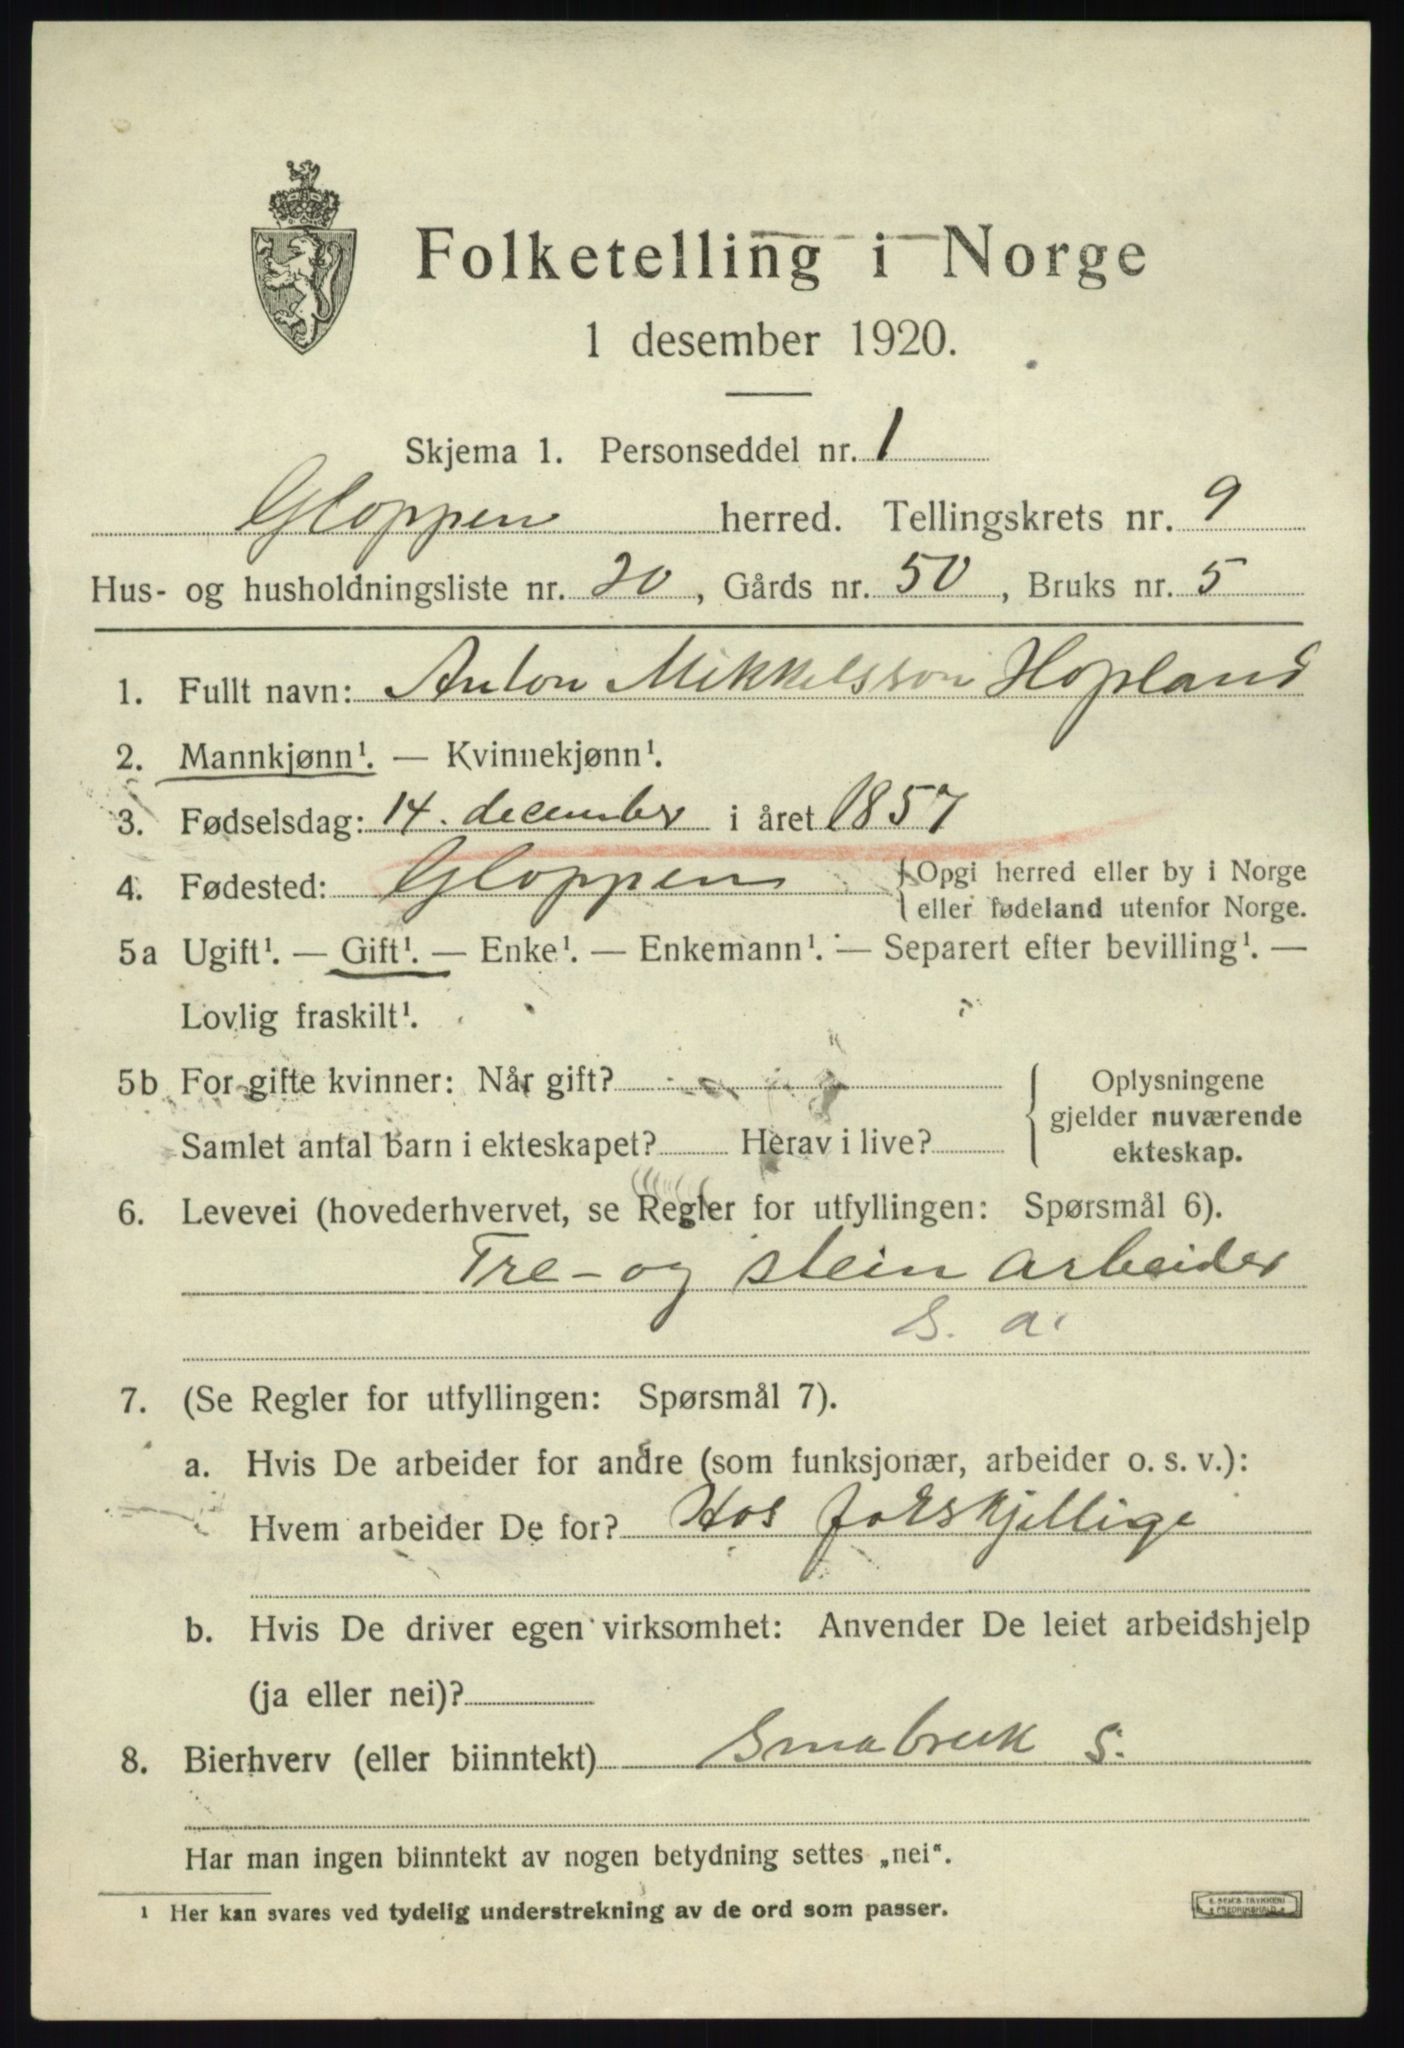 Folketelling i Norge
1 desember 1920.
Skjema 1. Personseddel nr. 1
Gloppen herred. Tellingskrets nr. 9
Hus- og husholdningsliste nr. 20, Gårds nr. 50, Bruks nr. 5
1. Fullt navn: Anton Mikkelsson Hopland
2. Mannkjønn¹. — Kvinnekjønn¹.
3. Fødselsdag: 14. december i året 1857
4. Fødested: Gloppen { Opgi herred eller by i Norge
eller fødeland utenfor Norge.
5a Ugift¹. — Gift¹. — Enke¹. — Enkemann¹. — Separert efter bevilling¹. —
Lovlig fraskilt¹.
5b For gifte kvinner: Når gift? { Oplysningene
gjelder nuværende
Samlet antal barn i ekteskapet? Herav i live? ekteskap.
6. Levevei (hovederhvervet, se Regler for utfyllingen: Spørsmål 6).
Tre- og stein arbeider
S. a.
7. (Se Regler for utfyllingen: Spørsmål 7).
a. Hvis De arbeider for andre (som funksjonær, arbeider o. s. v.):
Hvem arbeider De for? Hos forskjellige
b. Hvis De driver egen virksomhet: Anvender De leiet arbeidshjelp
(ja eller nei)?
8. Bierhverv (eller biinntekt) Smabruk S.
Har man ingen biinntekt av nogen betydning settes „nei“.
¹ Her kan svares ved tydelig understrekning av de ord som passer.